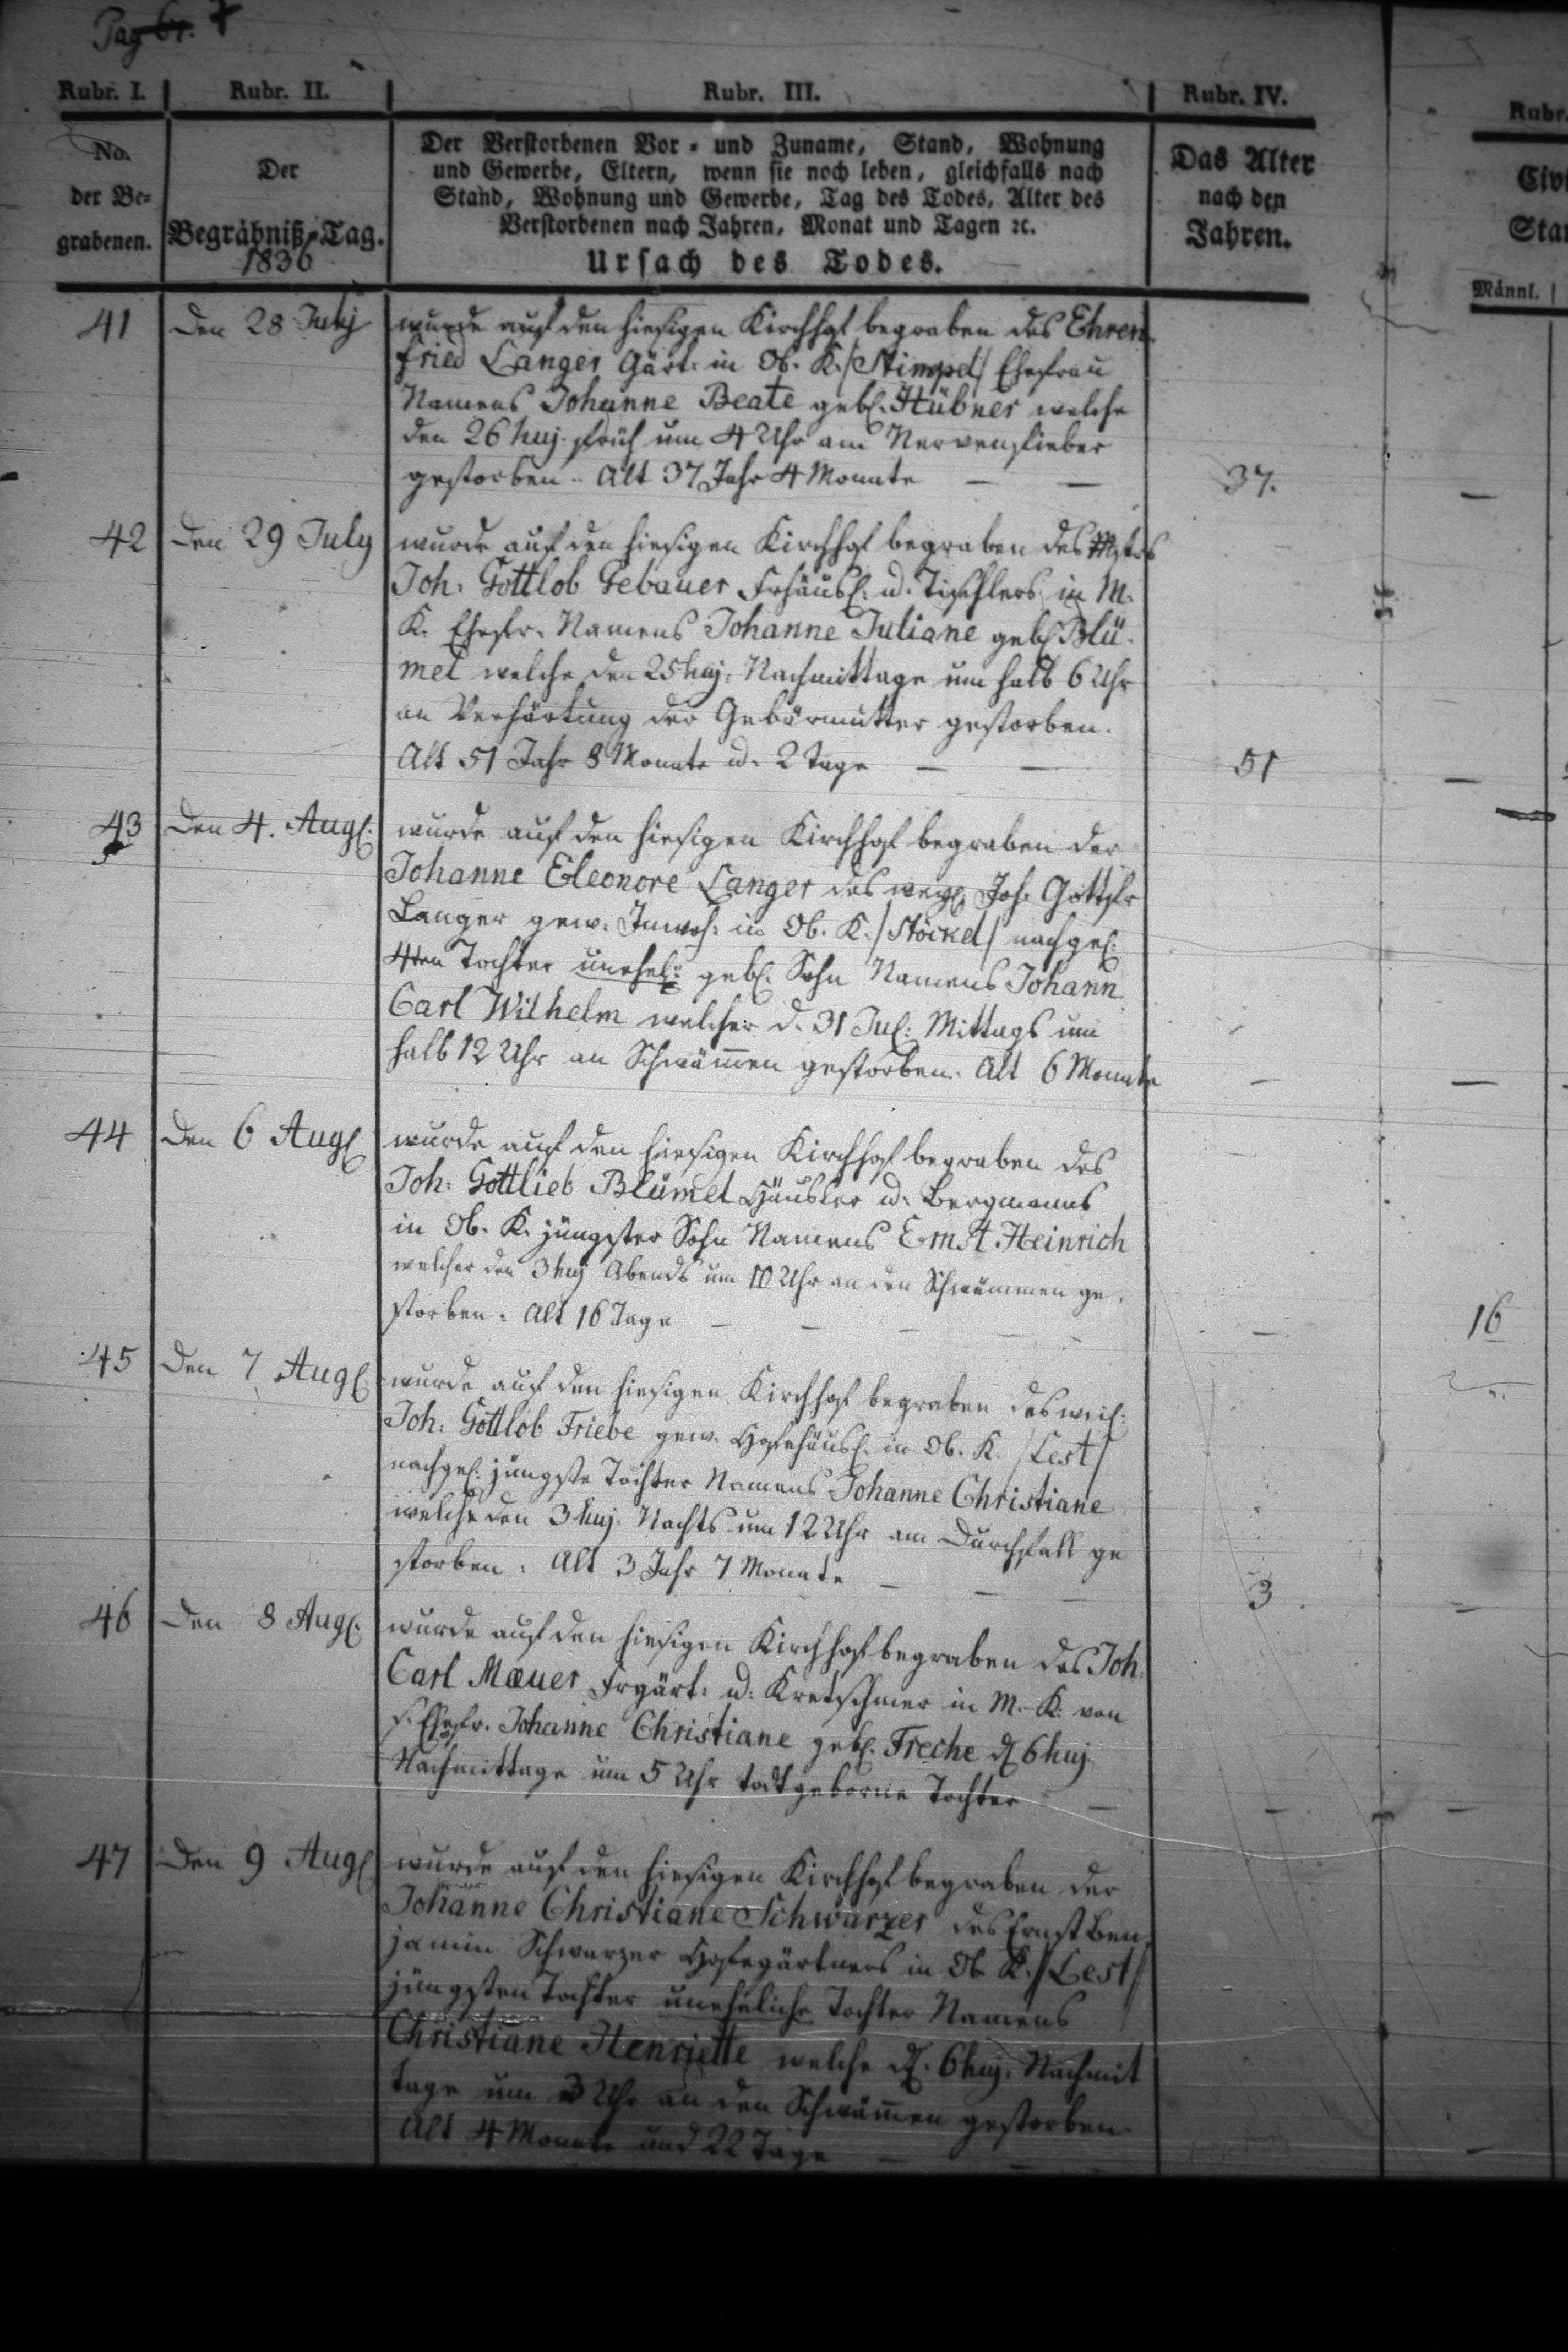 Pag 61. 7
Rubr. I. Rubr. II. Rubr. III. Rubr. IV. Rubr.
No. der Be- grabenen.
Der Begräbniß-Tag. 1836
Der Verstorbenen Vor- und Zuname, Stand, Wohnung
und Gewerbe, Eltern, wenn sie noch leben, gleichfalls nach
Stand, Wohnung und Gewerbe, Tag des Todes, Alter des
Verstorbenen nach Jahren, Monat und Tagen ꝛc.
Ursach des Todes.
Das Alter nach den Jahren.
Civi
Stan
Männl.
41 Den 28 July wurde auf den hiesigen Kirchhof begraben des Ehren-
fried Langer Gärt: in Ob. K. /Stimpel/ Ehefrau
Namens Johanne Beate geb. Hübner welche
den 26 huj. früh um 4 Uhr am Nervenfieber
gestorben. Alt 37 Jahr 4 Monate — — 37. —
42 Den 29 July wurde auf den hiesigen Kirchhof begraben des Mstrs
Joh: Gottlob Gebauer Frhäusl: u. Tischlers in M.
K. Ehefr. Namens Johanne Juliane geb. Blü-
mel welche den 25 huj: Nachmittage um halb 6 Uhr
an Verhärtung der Gebärmutter gestorben.
Alt 51 Jahr 8 Monate u. 2 Tage — — 51 —
43 Den 4. Aug. wurde auf den hiesigen Kirchhof begraben der
Johanne Eleonore Langer des Joh. Gottfr
Langer gew. Inwoh: in Ob. K. /Stöckel/ nachgel:
4ten Tochter unehel: geb. Sohn Namens Johann
Carl Wilhelm welcher d. 31 Jul: Mittags um
halb 12 Uhr an Schwäm̄en gestorben. Alt 6 Monate — —
44 Den 6 Aug. wurde auf den hiesigen Kirchhof begraben des
Joh: Gottlieb Blümel Häusler u. Bergmanns
in Ob. K. jüngster Sohn Namens Ernst Heinrich
welcher den 3 huj Abends um 10 Uhr an den Schwämmen ge-
storben. Alt 16 Tage — — — — — 16
45 Den 7 Aug. wurde auf den hiesigen Kirchhof begraben des weil:
Joh: Gottlob Friebe gew. Hofehäusl. in Ob. K. /Lest/
nachgel: jüngste Tochter Namens Johanne Christiane
welche den 3 huj. Nachts um 12 Uhr am Durchfall ge
storben. Alt 3 Jahr 7 Monate — — 3. —
46 Den 8 Aug. wurde auf den hiesigen Kirchhof begraben des Joh.
Carl Mauer Frgärt: u: Kretschmer in M. K. von
s. Ehefr. Johanne Christiane geb. Freche d. 6 huj.
Nachmittage um 5 Uhr todtgeborne Tochter — — —
47 Den 9 Aug. wurde auf den hiesigen Kirchhof begraben der
Johanne Christiane Schwarzer des Ernst Ben-
jamin Schwarzer Hofegärtners in Ob. K. /Lest/
jüngsten Tochter uneheliche Tochter Namens
Christiane Henriette welche d. 6 huj. Nachmit
tage um 3 Uhr an den Schwäm̄en gestorben.
Alt 4 Monate und 22 Tage — — —